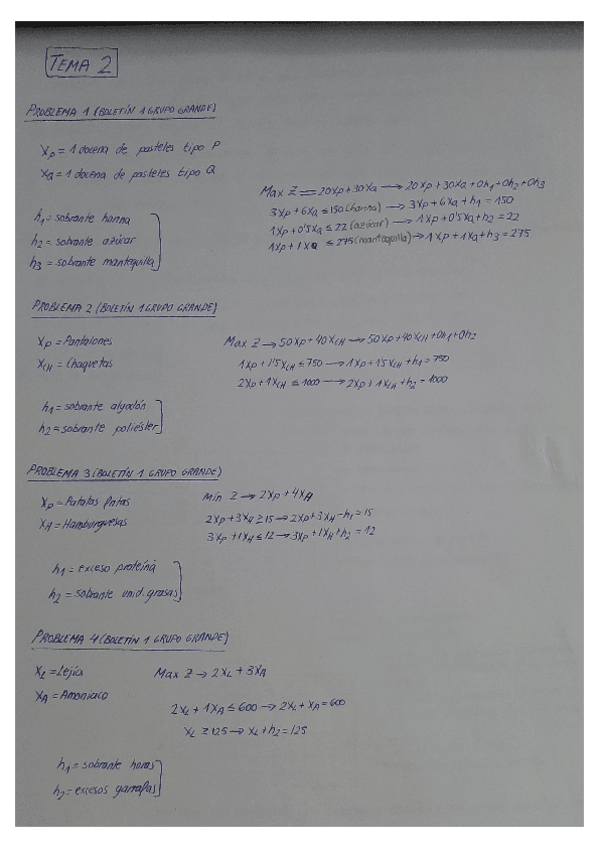 TEMA 2
PROBLEMA 1 (BOLETÍN 1 GRUPO GRANDE)
Xp = 1 docena de pasteles tipo P
XQ = 1 docena de pasteles tipo Q
Max Z = 20Xp + 30XQ → 20Xp + 30XQ + 0h1 + 0h2 + 0h3
3Xp + 6XQ ≤ 150 (harina) → 3Xp + 6XQ + h1 = 150
1Xp + 0'5XQ ≤ 22 (azúcar) → 1Xp + 0'5XQ + h2 = 22
1Xp + 1XQ ≤ 275 (mantequilla) → 1Xp + 1XQ + h3 = 275
h1 = sobrante harina
h2 = sobrante azúcar
h3 = sobrante mantequilla
PROBLEMA 2 (BOLETÍN 1 GRUPO GRANDE)
Xp = Pantalones
XCH = Chaquetas
Max Z → 50Xp + 40XCH → 50Xp + 40XCH + 0h1 + 0h2
1Xp + 1'5XCH ≤ 750 → 1Xp + 1'5XCH + h1 = 750
2Xp + 1XCH ≤ 1000 → 2Xp + 1XCH + h2 = 1000
h1 = sobrante algodón
h2 = sobrante poliéster
PROBLEMA 3 (BOLETÍN 1 GRUPO GRANDE)
Xp = Patatas fritas
XH = Hamburguesas
Min Z → 2Xp + 4XH
2Xp + 3XH ≥ 15 → 2Xp + 3XH - h1 = 15
3Xp + 1XH ≤ 12 → 3Xp + 1XH + h2 = 12
h1 = exceso proteína
h2 = sobrante unid. grasas
PROBLEMA 4 (BOLETÍN 1 GRUPO GRANDE)
XL = Lejía
XA = Amoniaco
Max Z → 2XL + 3XA
2XL + 1XA ≤ 600 → 2XL + XA = 600
XL ≥ 125 → XL + h2 = 125
h1 = sobrante horas
h2 = excesos garrafas